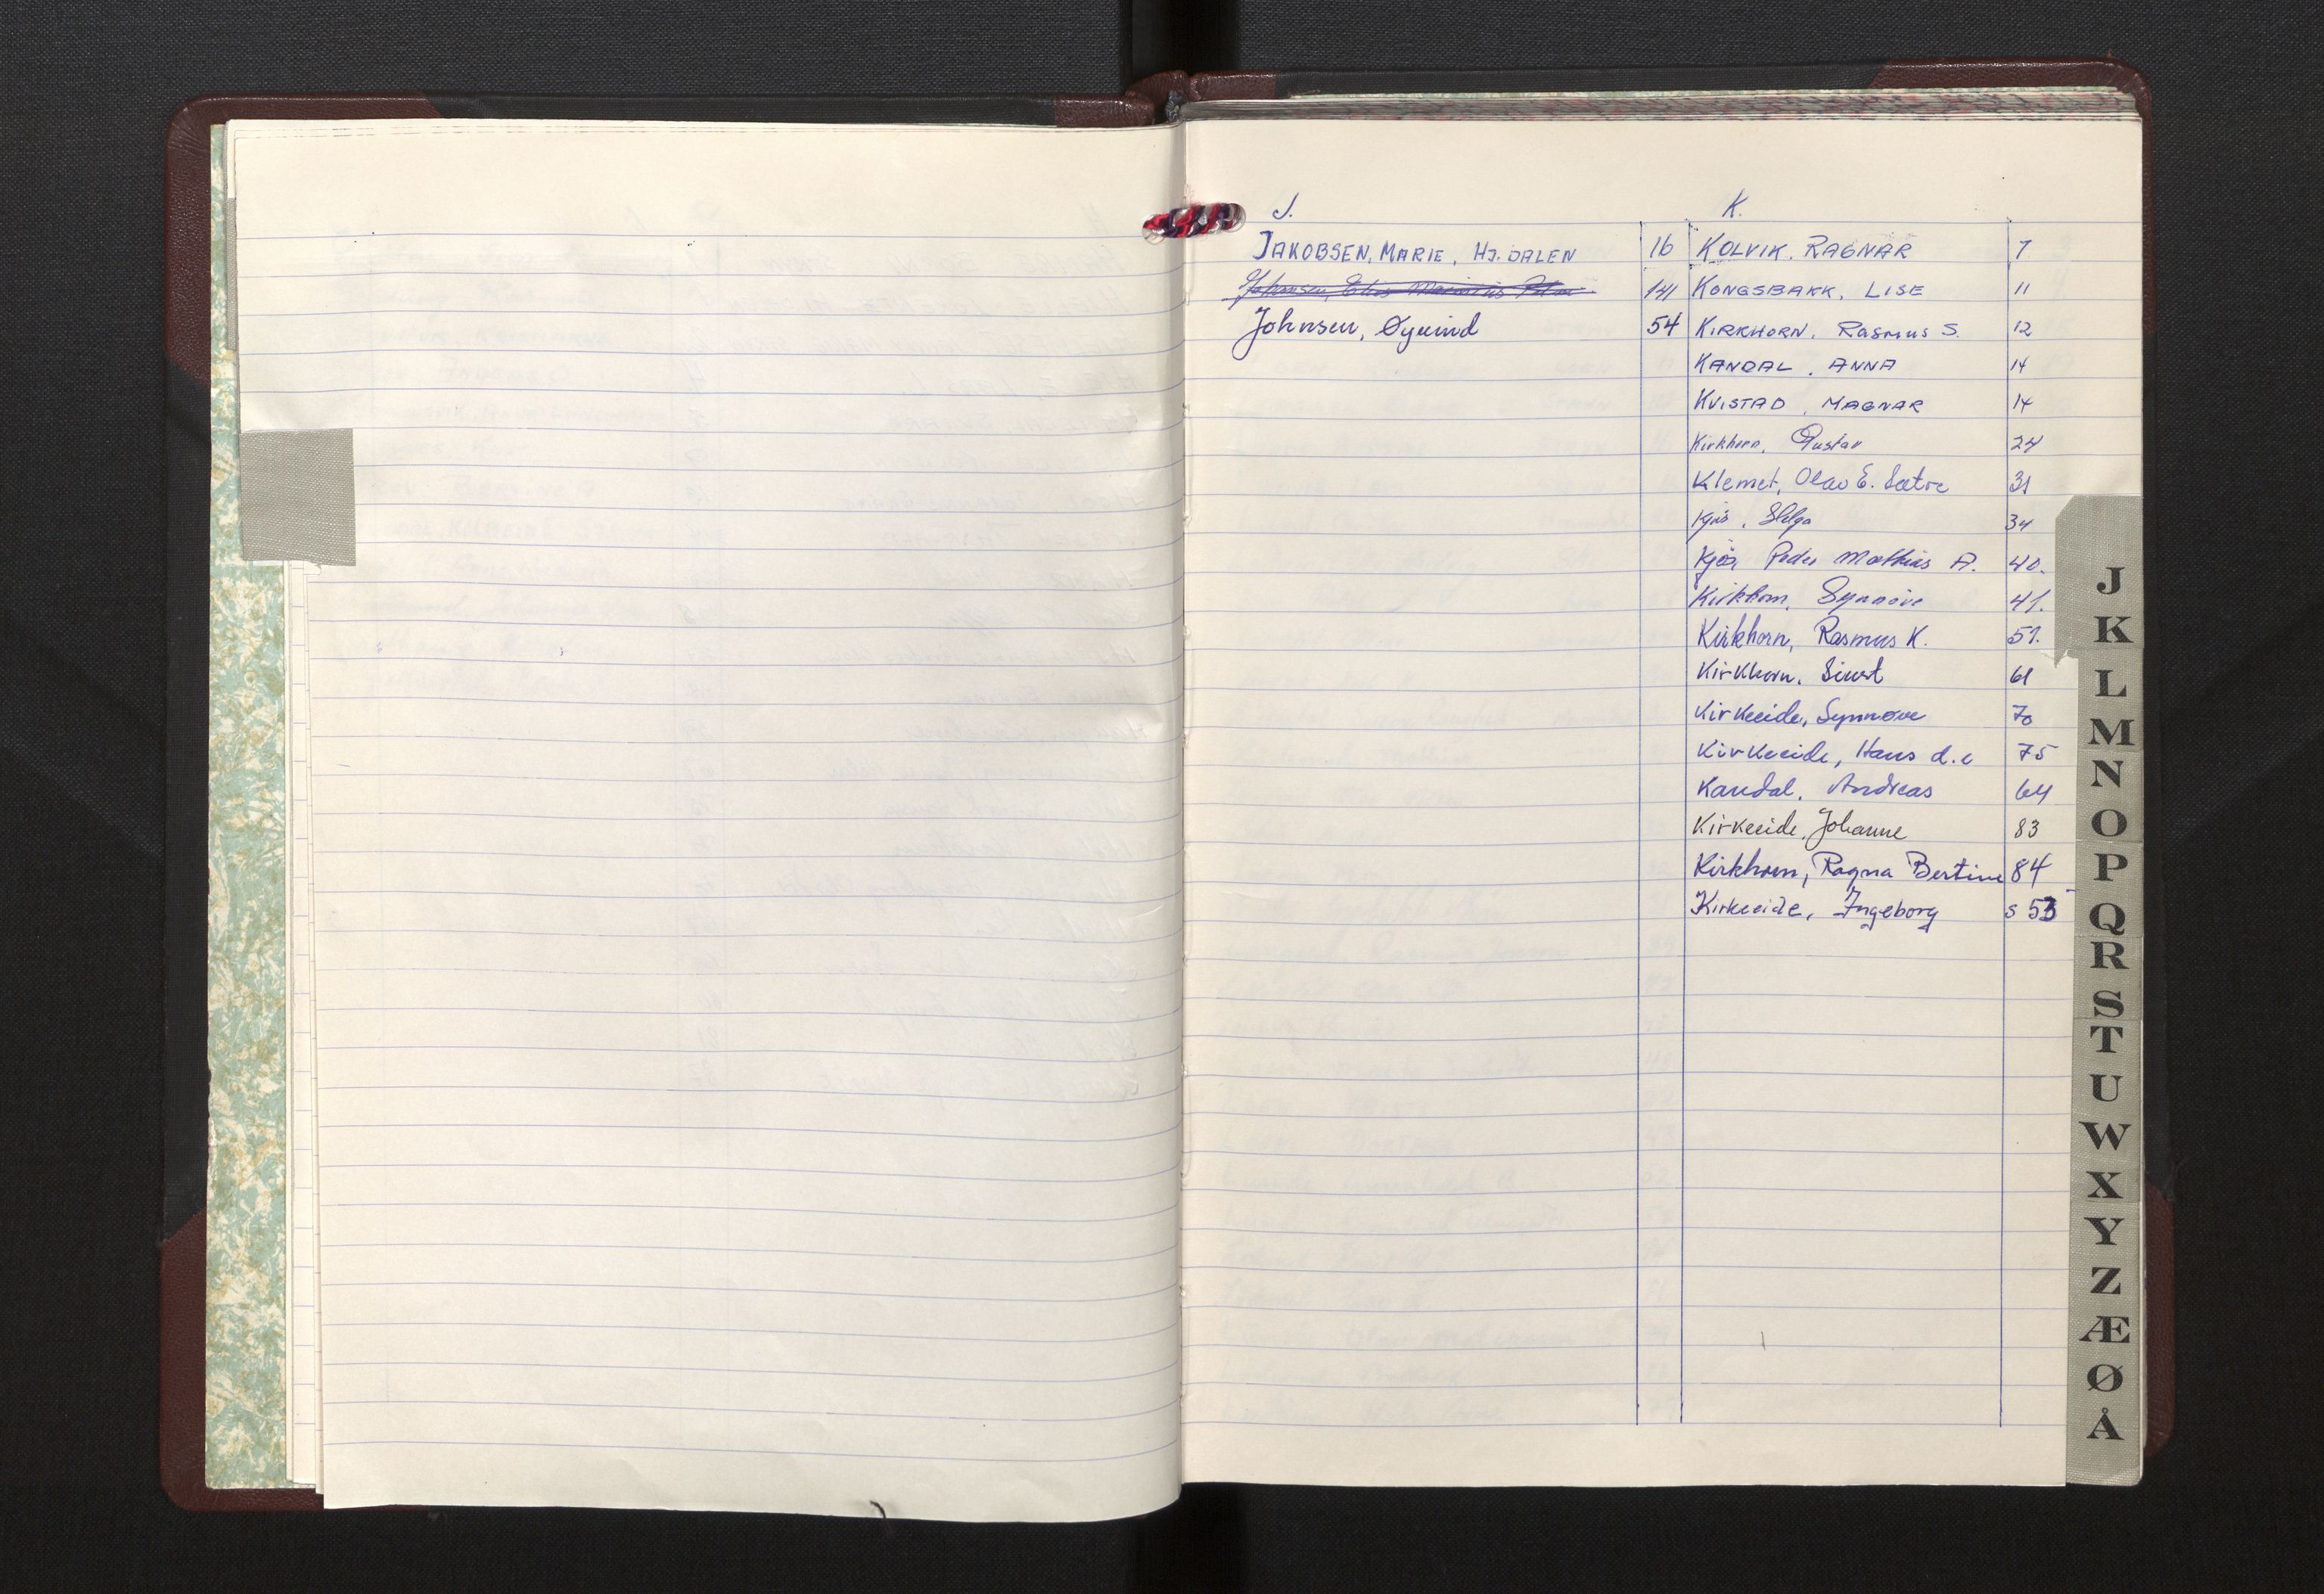 J.
JAKOBSEN, MARIE, HJ. DALEN 16
Johansen, 141
Johnsen, Øyvind 54
K.
KOLVIK. RAGNAR 7
KONGSBAKK, LISE 11
KIRKHORN, RASMUS S. 12
KANDAL, ANNA 14
KVISTAD, MAGNAR 14
Kirkhorn, Gustav 24
Klemet, Olav E. Sætre 31
Kjøs, Helga 34
Kjøs, Peder Mathias A. 40.
Kirkhorn, Synnøve 41.
Kirkhorn, Rasmus K. 51.
Kirkhorn, Sivert 61
Kirkeeide, Synnøve 70
Kirkeeide, Hans d.e 75
Kandal, Andreas 64
Kirkeeide, Johanne 83
Kirkhorn, Ragna Bertine 84
Kirkeeide, Ingeborg s 53
J
K
L
M
N
O
P
Q
R
S
T
U
W
X
Y
Z
Æ
Ø
Å